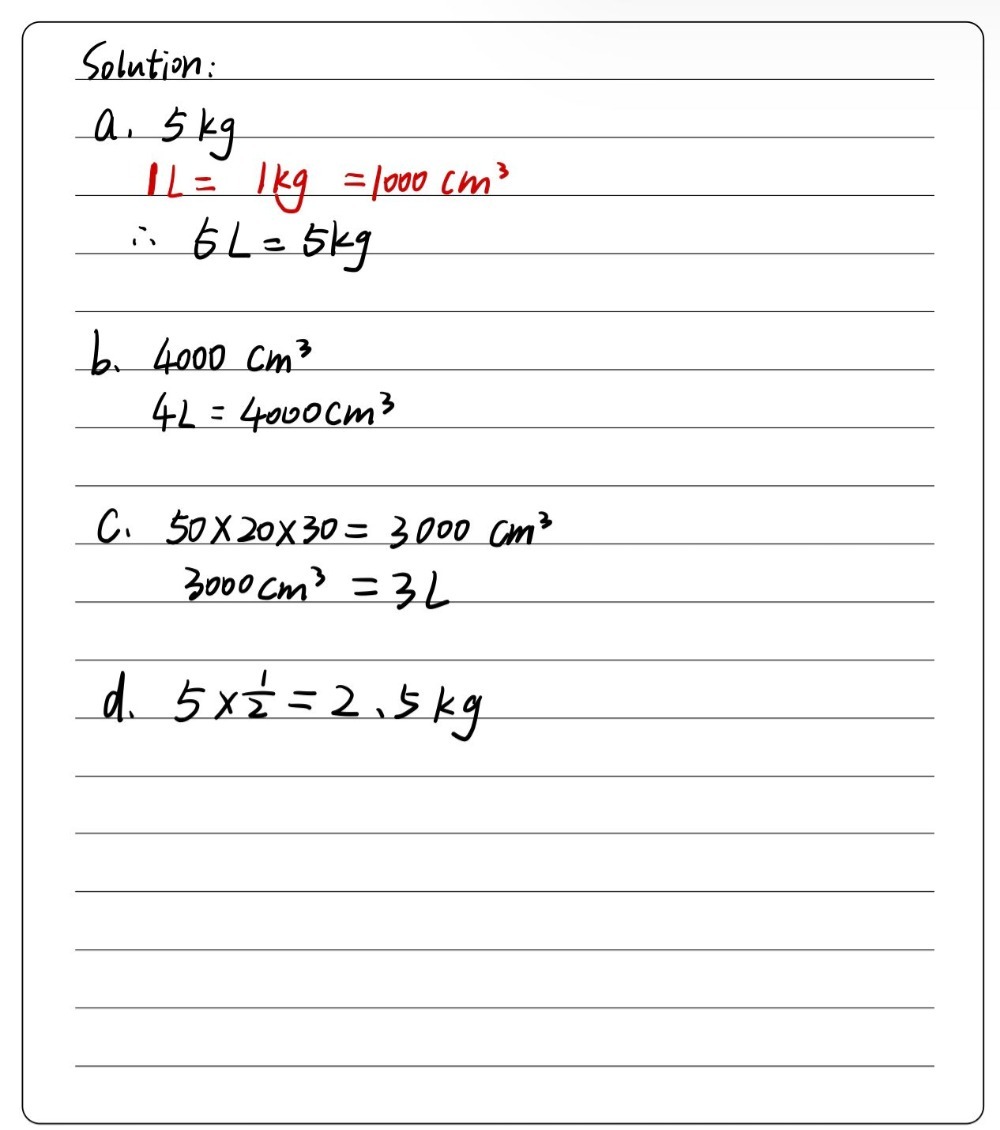 Solution:
a. 5 kg
1L = 1kg = 1000 cm³
∴ 5 L = 5kg
b. 4000 cm³
4L = 4000cm³
C. 50×20×30 = 3000 cm³
3000cm³ = 3L
d. 5×½ = 2.5kg